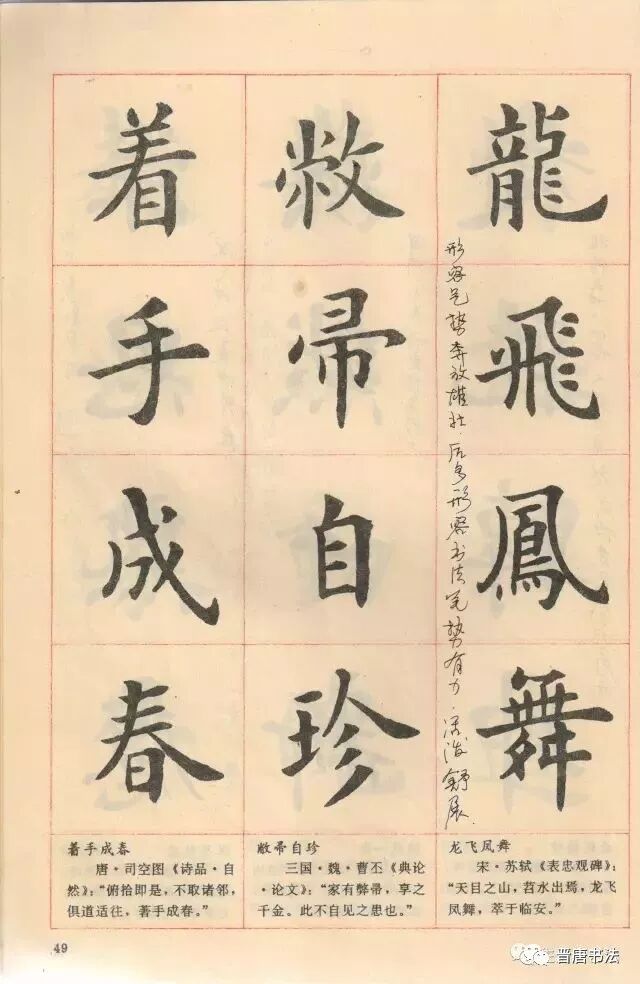 龍飛鳳舞
形容气势奔放雄壮.后多形容书法笔势有力.活泼舒展.
敝帚自珍
着手成春
龙飞凤舞
宋·苏轼《表忠观碑》:
“天目之山,苕水出焉,龙飞
凤舞,萃于临安。”
敝帚自珍
三国·魏·曹丕《典论
·论文》:“家有弊帚,享之
千金。此不自见之患也。”
着手成春
唐·司空图《诗品·自
然》:“俯拾即是,不取诸邻,
俱道适往,著手成春。”
49
晋唐书法